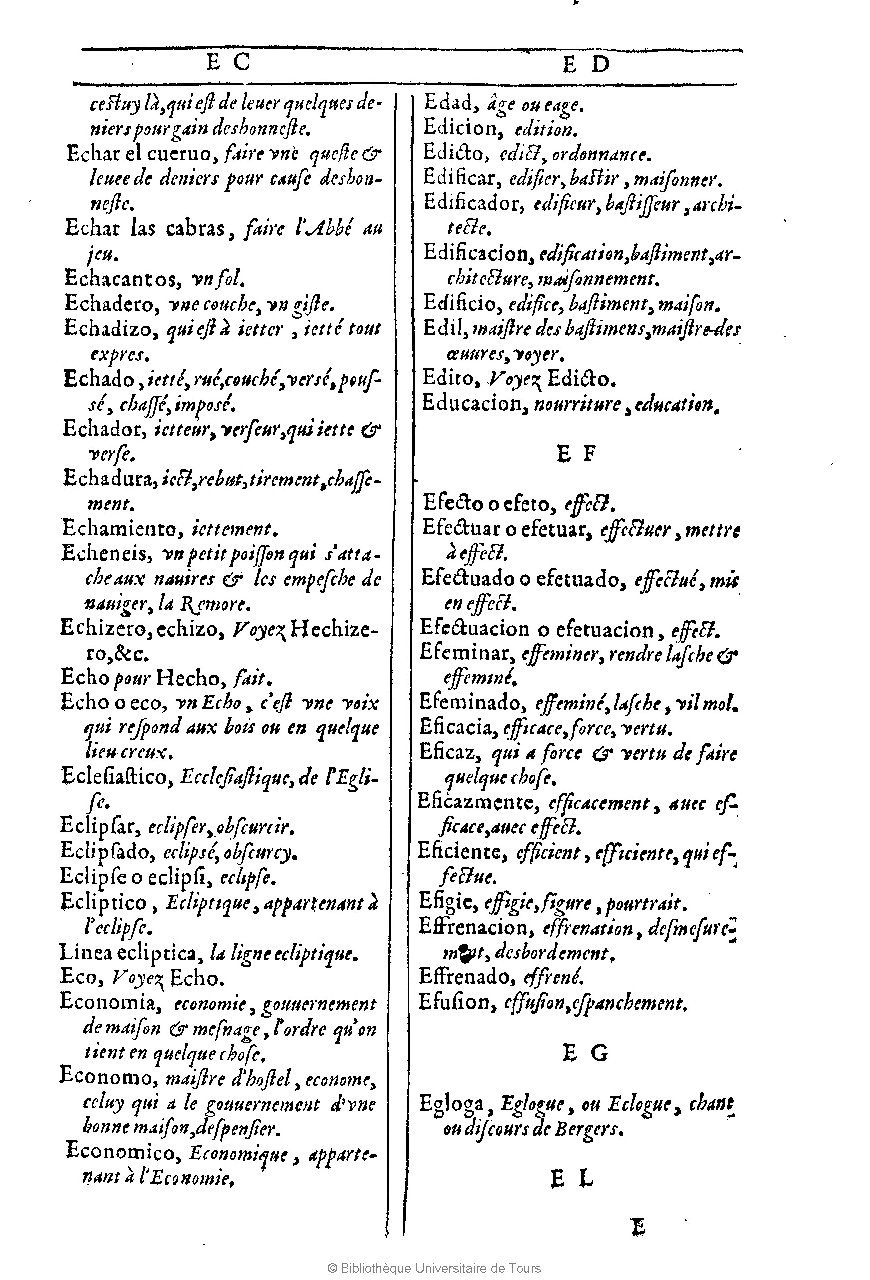 E C
ceſtuy là, qui eſt de leuer quelques de-
niers pour gain deshonneſte.
Echar el cueruo, faire vne queſte &
leuee de deniers pour cauſe deshon-
neſte.
Echar las cabras, faire l'Abbé au
jeu.
Echacantos, vn fol.
Echadero, vne couche, vn giſte.
Echadizo, qui eſt à ietter, ietté tout
expres.
Echado, ietté, rué, couché, versé, pouſ-
sé, chaſſé, imposé.
Echador, ietteur, verſeur, qui iette &
verſe.
Echadura, iect, rebut, tirement, chaſſe-
ment.
Echamiento, iettement.
Echeneis, vn petit poiſſon qui s'atta-
che aux nauires & les empeſche de
nauiger, la Remore.
Echizero, echizo, Voyez Hechize-
ro, &c.
Echo pour Hecho, fait.
Echo o eco, vn Echo, c'eſt vne voix
qui reſpond aux bois ou en quelque
lieu creux.
Ecleſiaſtico, Eccleſiaſtique, de l'Egli-
ſe.
Eclipſar, eclipſer, obſcurcir.
Eclipſado, eclipsé, obſcurcy.
Eclipſe o eclipſi, eclipſe.
Ecliptico, Ecliptique, appartenant à
l'eclipſe.
Linea ecliptica, la ligne ecliptique.
Eco, Voyez Echo.
Economia, economie, gouuernement
de maiſon & meſnage, l'ordre qu'on
tient en quelque choſe.
Economo, maiſtre d'hoſtel, econome,
celuy qui a le gouuernement d'vne
bonne maiſon, deſpenſier.
Economico, Economique, apparte-
nant à l'Economie.
E D
Edad, âge ou eage.
Edicion, edition.
Edicto, edict, ordonnance.
Edificar, edifier, baſtir, maiſonner.
Edificador, edifieur, baſtiſſeur, archi-
tecte.
Edificacion, edification, baſtiment, ar-
chitecture, maiſonnement.
Edificio, edifice, baſtiment, maiſon.
Edil, maiſtre des baſtimens, maiſtre des
œuures, voyer.
Edito, Voyez Edicto.
Educacion, nourriture, education.
E F
Efecto o efeto, effect.
Efectuar o efetuar, effectuer, mettre
à effect.
Efectuado o efetuado, effectué, mis
en effect.
Efectuacion o efetuacion, effect.
Efeminar, effeminer, rendre laſche &
effeminé.
Efeminado, effeminé, laſche, vil mol.
Eficacia, efficace, force, vertu.
Eficaz, qui a force & vertu de faire
quelque choſe.
Eficazmente, efficacement, auec ef-
ficace, auec effect.
Eficiente, efficient, efficiente, qui ef-
fectue.
Efigie, effigie, figure, pourtrait.
Effrenacion, effrenation, deſmeſure-
ment, desbordement.
Effrenado, effrené.
Efuſion, effuſion, eſpanchement.
E G
Egloga, Eglogue, ou Eclogue, chant
ou diſcours de Bergers.
E L
E
© Bibliothèque Universitaire de Tours